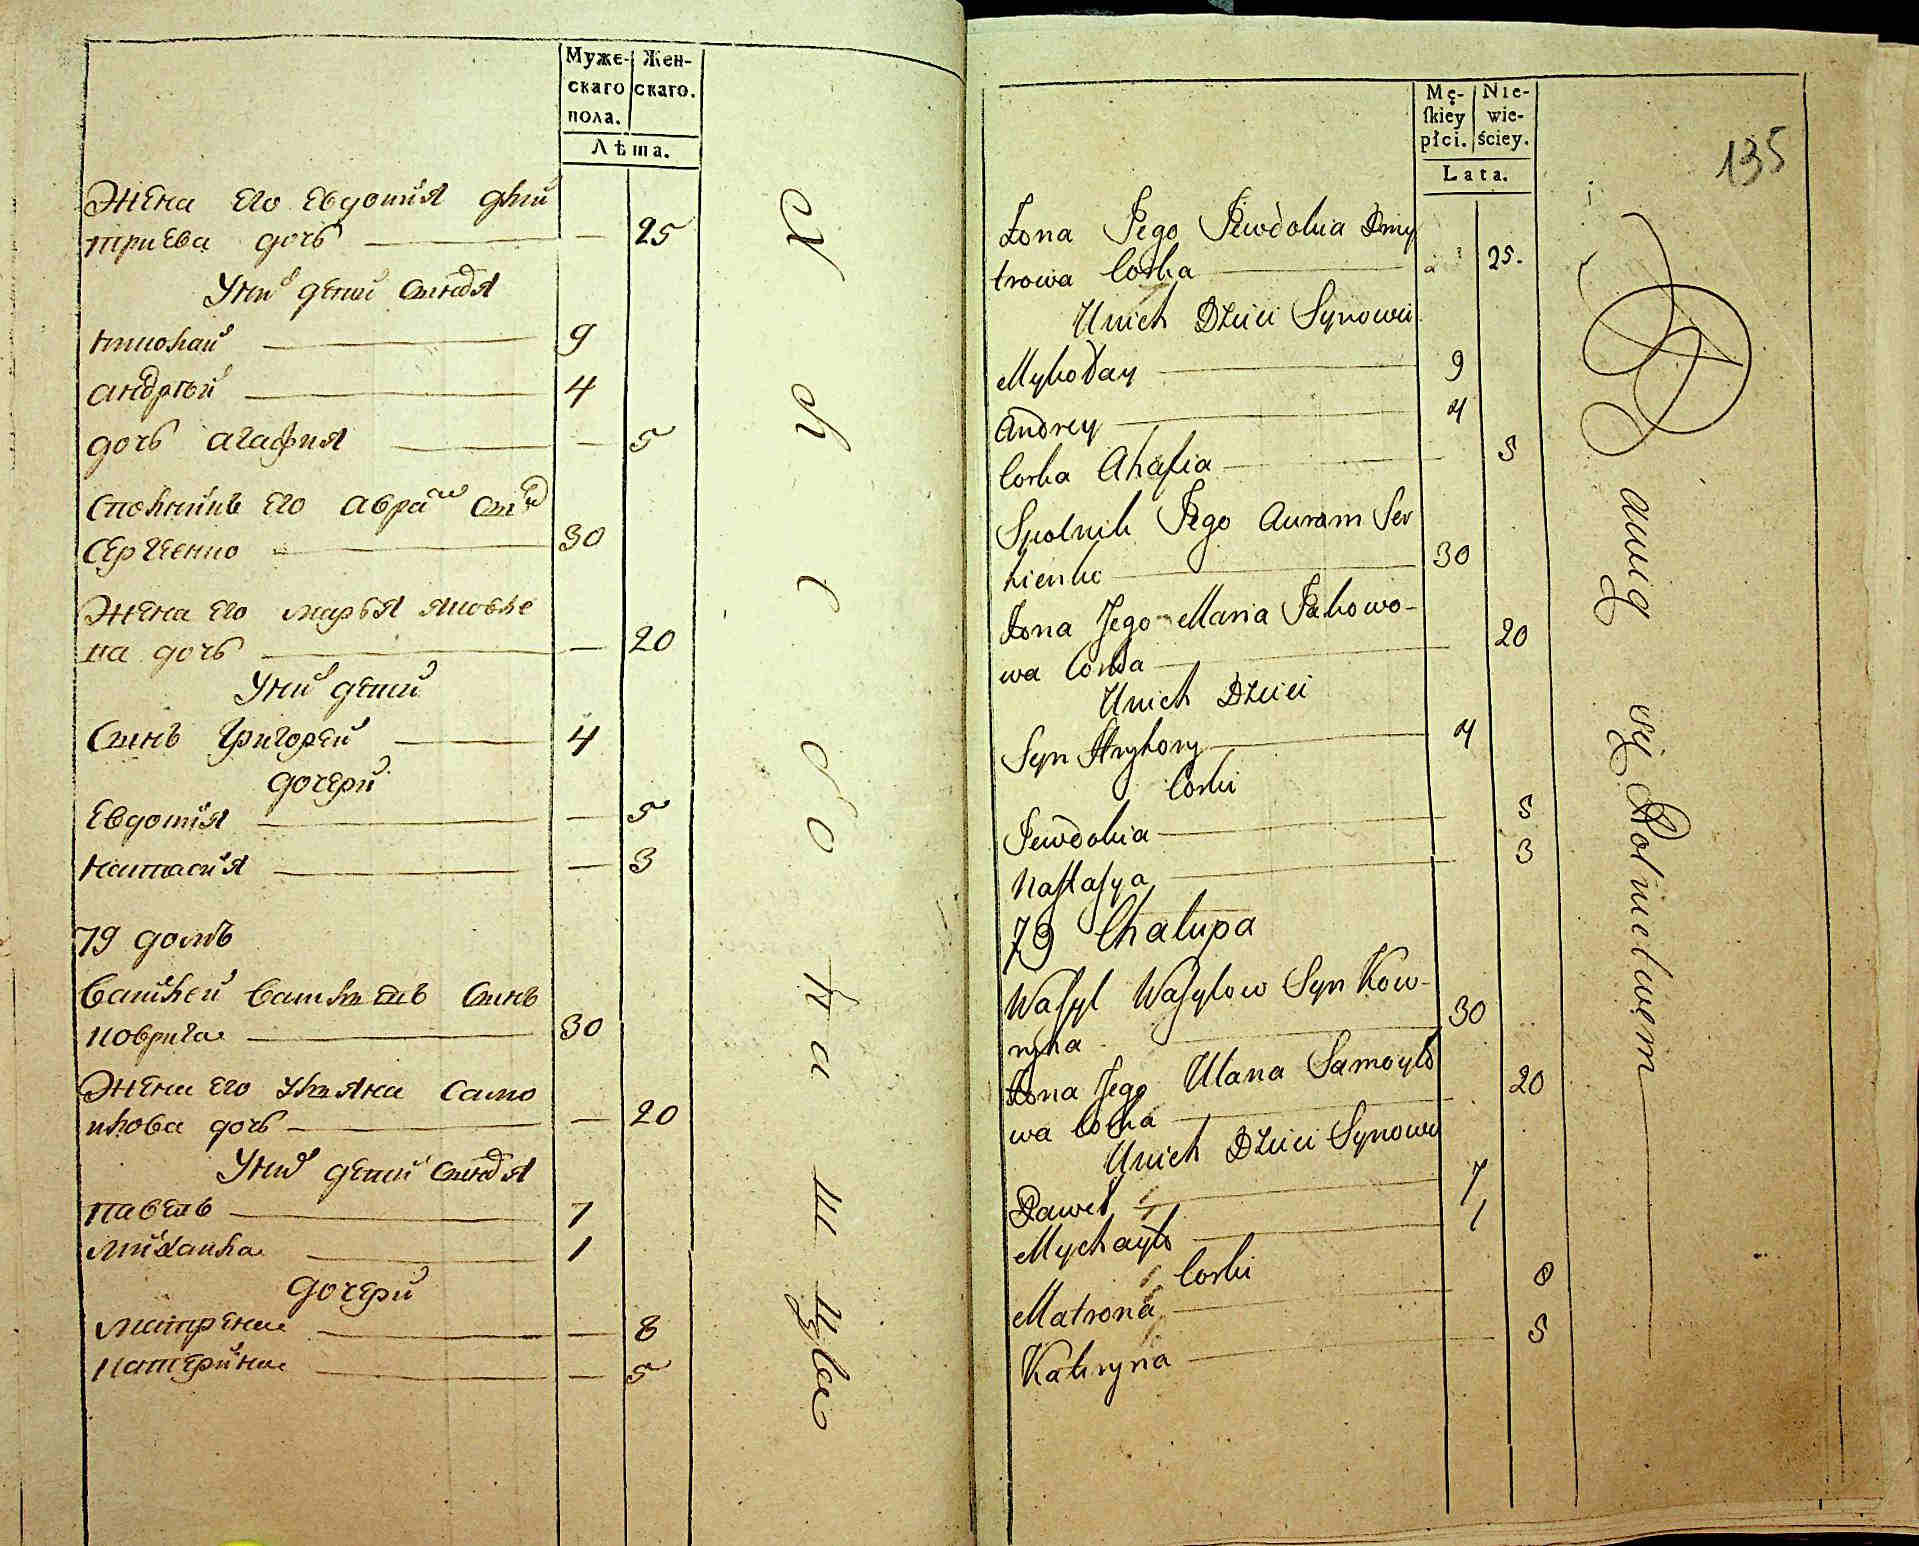 Муже-
скаго
пола.
Жен-
скаго.
Лѣта.
Жена его Евдокия дми
триева дочь — 25
У них детей синовя
николай 9
андрѣй 4
дочь агафия — 5
Сполникъ его аврам син
Сергиенко 30
Жена его марья яковле
на дочь — 20
У них детей
Синъ григорей 4
дочери
Евдокия — 5
настасия — 3
79 домъ
Василей Васильевъ Синъ
коврига 30
Жена его ульяна само
илова дочь — 20
У них детей синовя
павелъ 7
михайла 1
дочери
матрена — 8
катерина — 5
Mę-
ſkiey
płci.
Nie-
wie-
ściey.
Lata.
135
Żona Jego Jewdokia Dmy
trowa Corka 25.
U nich Dzieci Synowie
Mykołay 9
Andrey 4
Corka Ahafia 5
Spolnik Jego Auram Ser
hienko 30
Żona Jego Maria Jakowo-
wa Corka 20
U nich Dzieci
Syn Hryhory 4
Corki
Jewdokia 5
Naſtaſya 3
79 Chałupa
Waſyl Waſylow Syn Kow-
ryha 30
Żona Jego Ulana Samoyło
wa Corka 20
U nich Dzieci Synowie
Paweł 7
Mychayło 1
Corki
Matrona 8
Kateryna 5